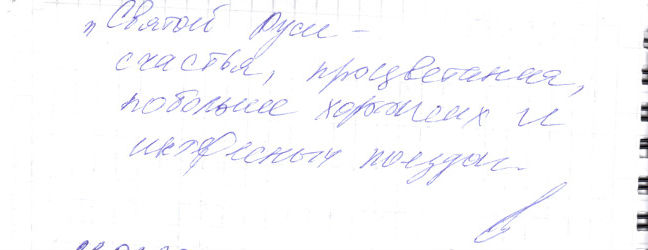 „Святой Руси –
счастья, процветания,
побольше хороших и
интересных поездок.